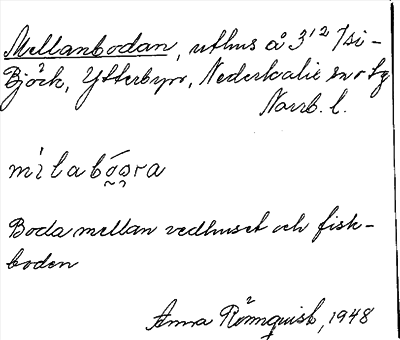 Mellanbodan, uthus å 3¹² Tsi-
Björk, Ytterbyn, Nederkalix sn o tg
Norrb. l.
Boda mellan vedhuset och fisk-
boden
Anna Rönnquist, 1948